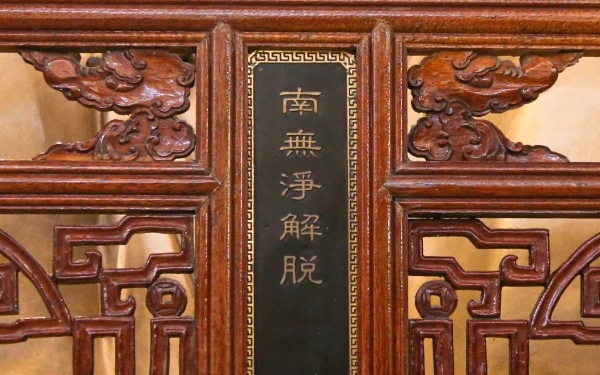 南無淨解脱